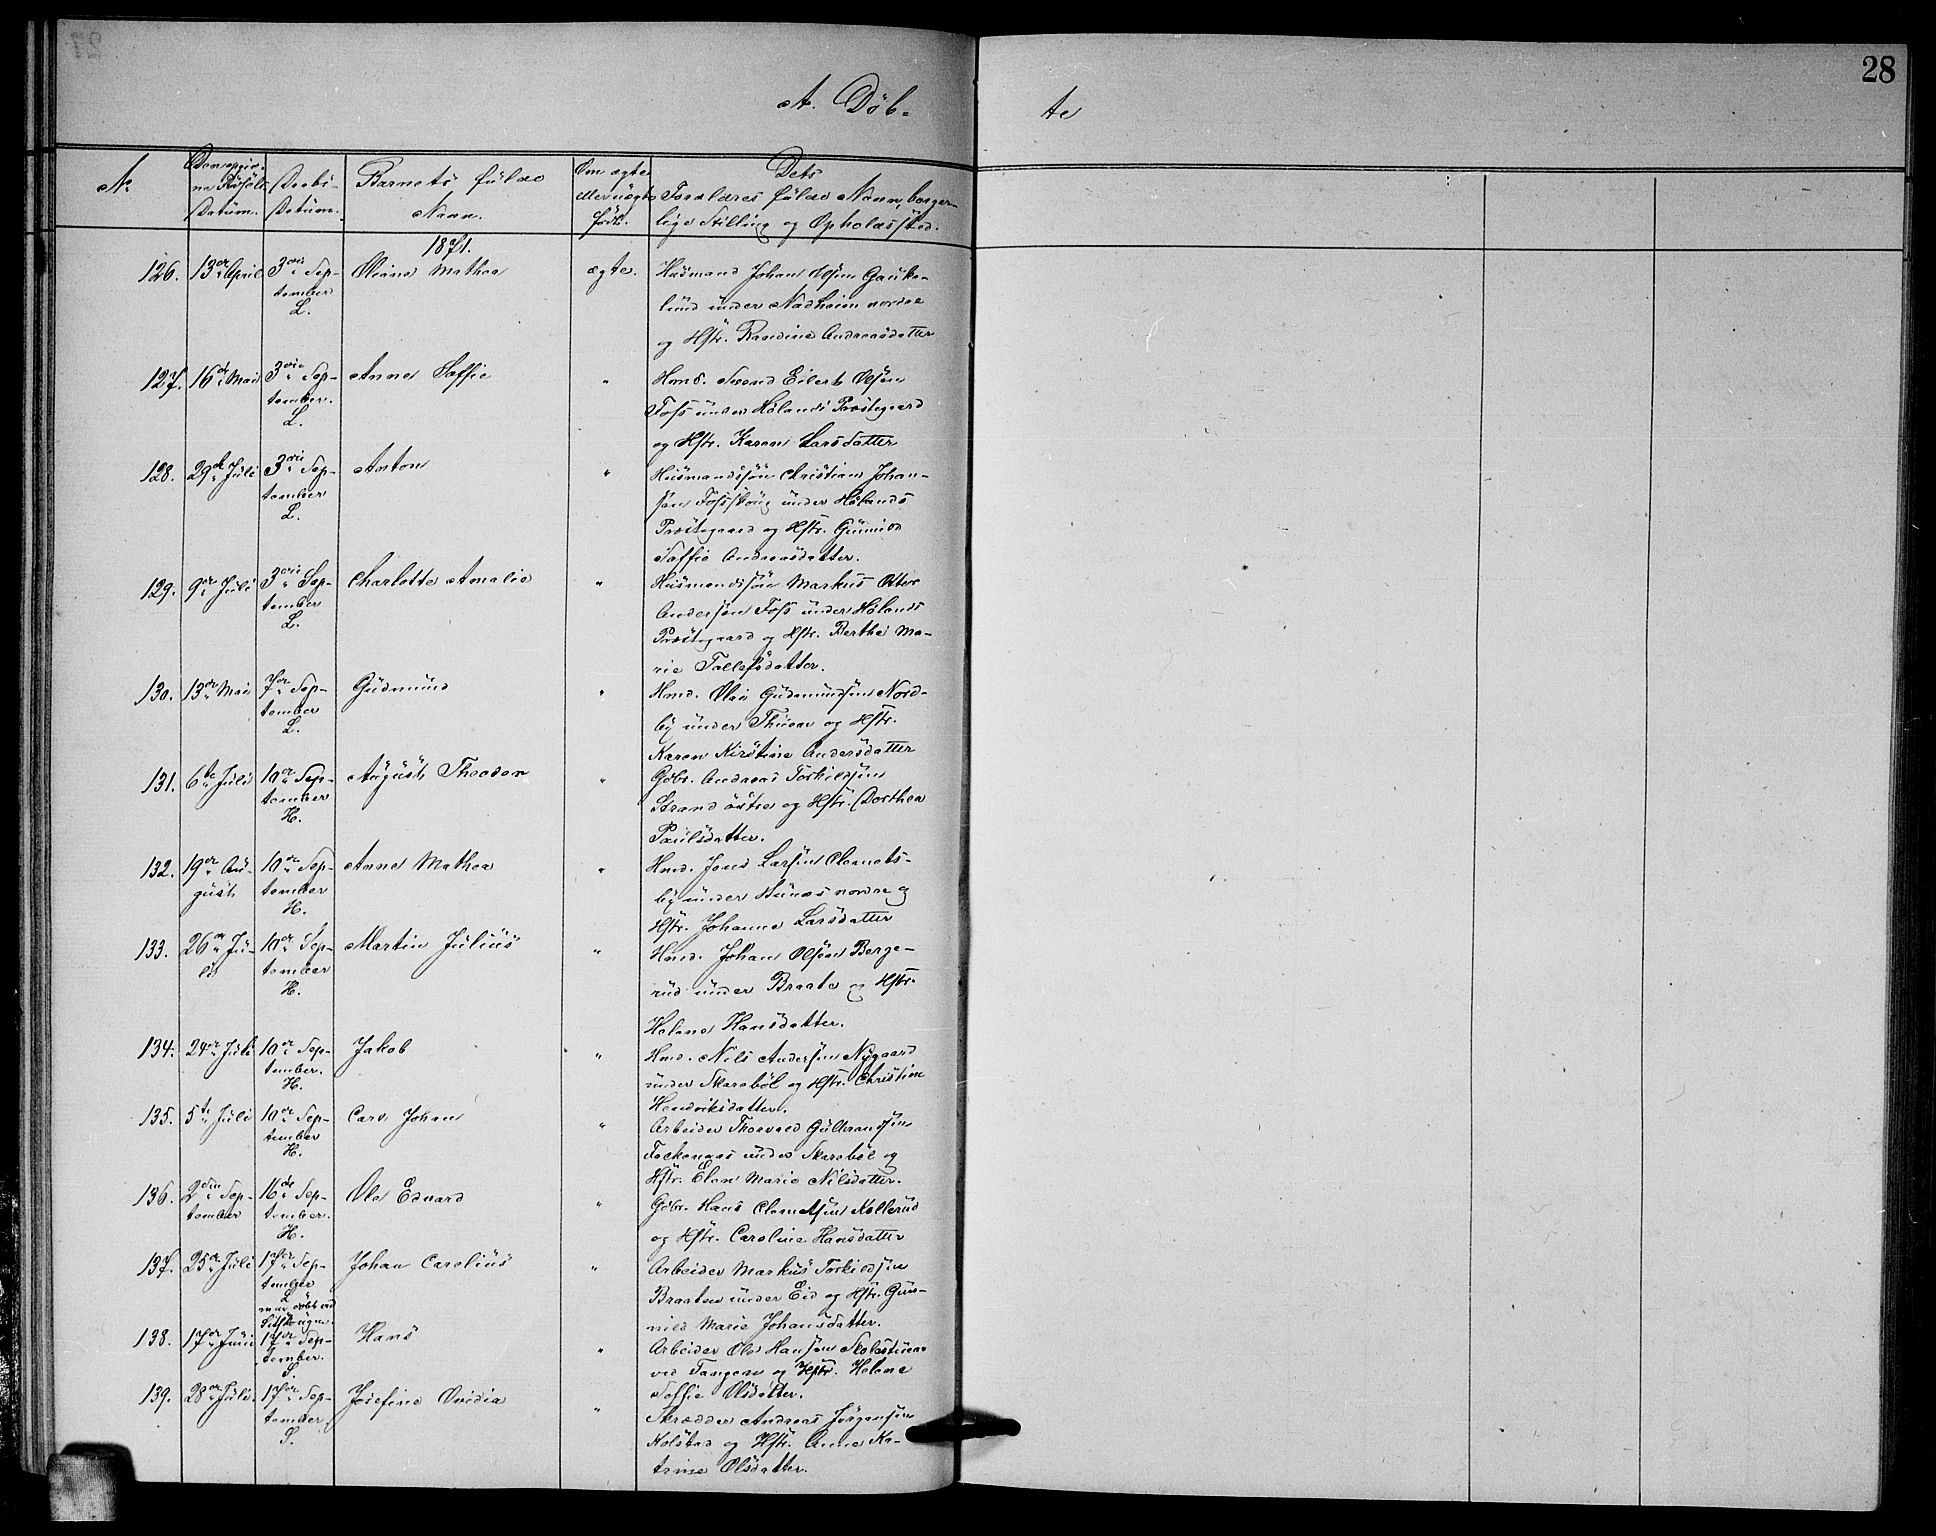 28
A. Døb-
te
N.
Den opgiv-
ne Fødsels-
Datum.
Daabs-
Datum.
Barnets fulde
Navn.
Om ægte
eller uægte
født.
Dets
Forældres fulde Navn, borger-
lige Stilling og Opholdssted.
1871.
126. 13de April 3die Sep-
tember
L.
Oleane Mathea
ægte.
Husmand Johan Olsen Gauke-
lund under Nadheim nordre
og Hstr. Randine Andreasdatter
127. 16de Mai 3die Sep-
tember.
L.
Anne Soffie
"
Hmd. Svend Eilert Olsen
Foss under Hølands Præstegaard
og Hstr. Karen Larsdatter
128. 29de Juli 3die Sep-
tember
L.
Anton
"
Husmandssøn Christian Johan-
sen Fosskoug under Hølands
Præstegaard og Hstr. Gunild
Soffie Andreasdatter.
129. 9de Juli 3die Sep-
tember
L.
Charlotte Amalie
"
Husmandssøn Markus Otter
Andersen Foss under Hølands
Præstegaard og Hstr. Berthe Ma-
rie Tollefsdatter.
130. 13de Mai 7de Sep-
tember
L.
Gudmund
"
Hmd. Olai Gudmundsen Nord-
by under Thuen og Hstr.
Karen Kirstine Andersdatter
131. 6te Juli 10de Sep-
tember
H.
August Theodor
"
Gbr. Andreas Torkildsen
Strand østre og Hstr. Dorthea
Paulsdatter.
132. 19de Au-
gust
10de Sep-
tember
H.
Anne Mathea
"
Hmd. Jens Larsen Clemets-
by under Hunæs nordre og
Hstr. Johanne Larsdatter
133. 26de Ju-
li
10de Sep-
tember
H.
Martin Julius
"
Hmd. Johan Olsen Berge-
rud under Braate og Hstr.
Helene Hansdatter.
134. 24de Juli 10de Sep-
tember.
H.
Jakob
"
Hmd. Nils Andersen Nygaard
under Skarebøl og Hstr. Christine
Hendriksdatter.
135. 5te Juli 10de Sep-
tember
H.
Carl Johan
"
Arbeider Thorvald Gulbrandsen
under Skarebøl og
Hstr. Elen Marie Nilsdatter.
136. 2den Sep-
tember
16de Sep-
tember.
H.
Ole Edvard
"
Gbr. Hans Clemetsen Kollerud
og Hstr. Caroline Hansdatter
137. 25de Juli 17de Sep-
tember
L
Johan Carelius
"
Arbeider Markus Torkildsen
Braaten under Eid og Hstr. Gun-
nild Marie Johansdatter.
138. 17de Juni 17de Sep-
tember.
S.
Hans
"
Arbeider Ole Hansen Skolestuen
ved Tangen og Hstr. Helene
Soffie Olsdatter.
139. 28de Juli. 17de Sep-
tember
S.
Josefine Ovidia
"
Skrædder Andreas Jørgensen
Kolstad og Hstr. Anne Ka-
trine Olsdatter.